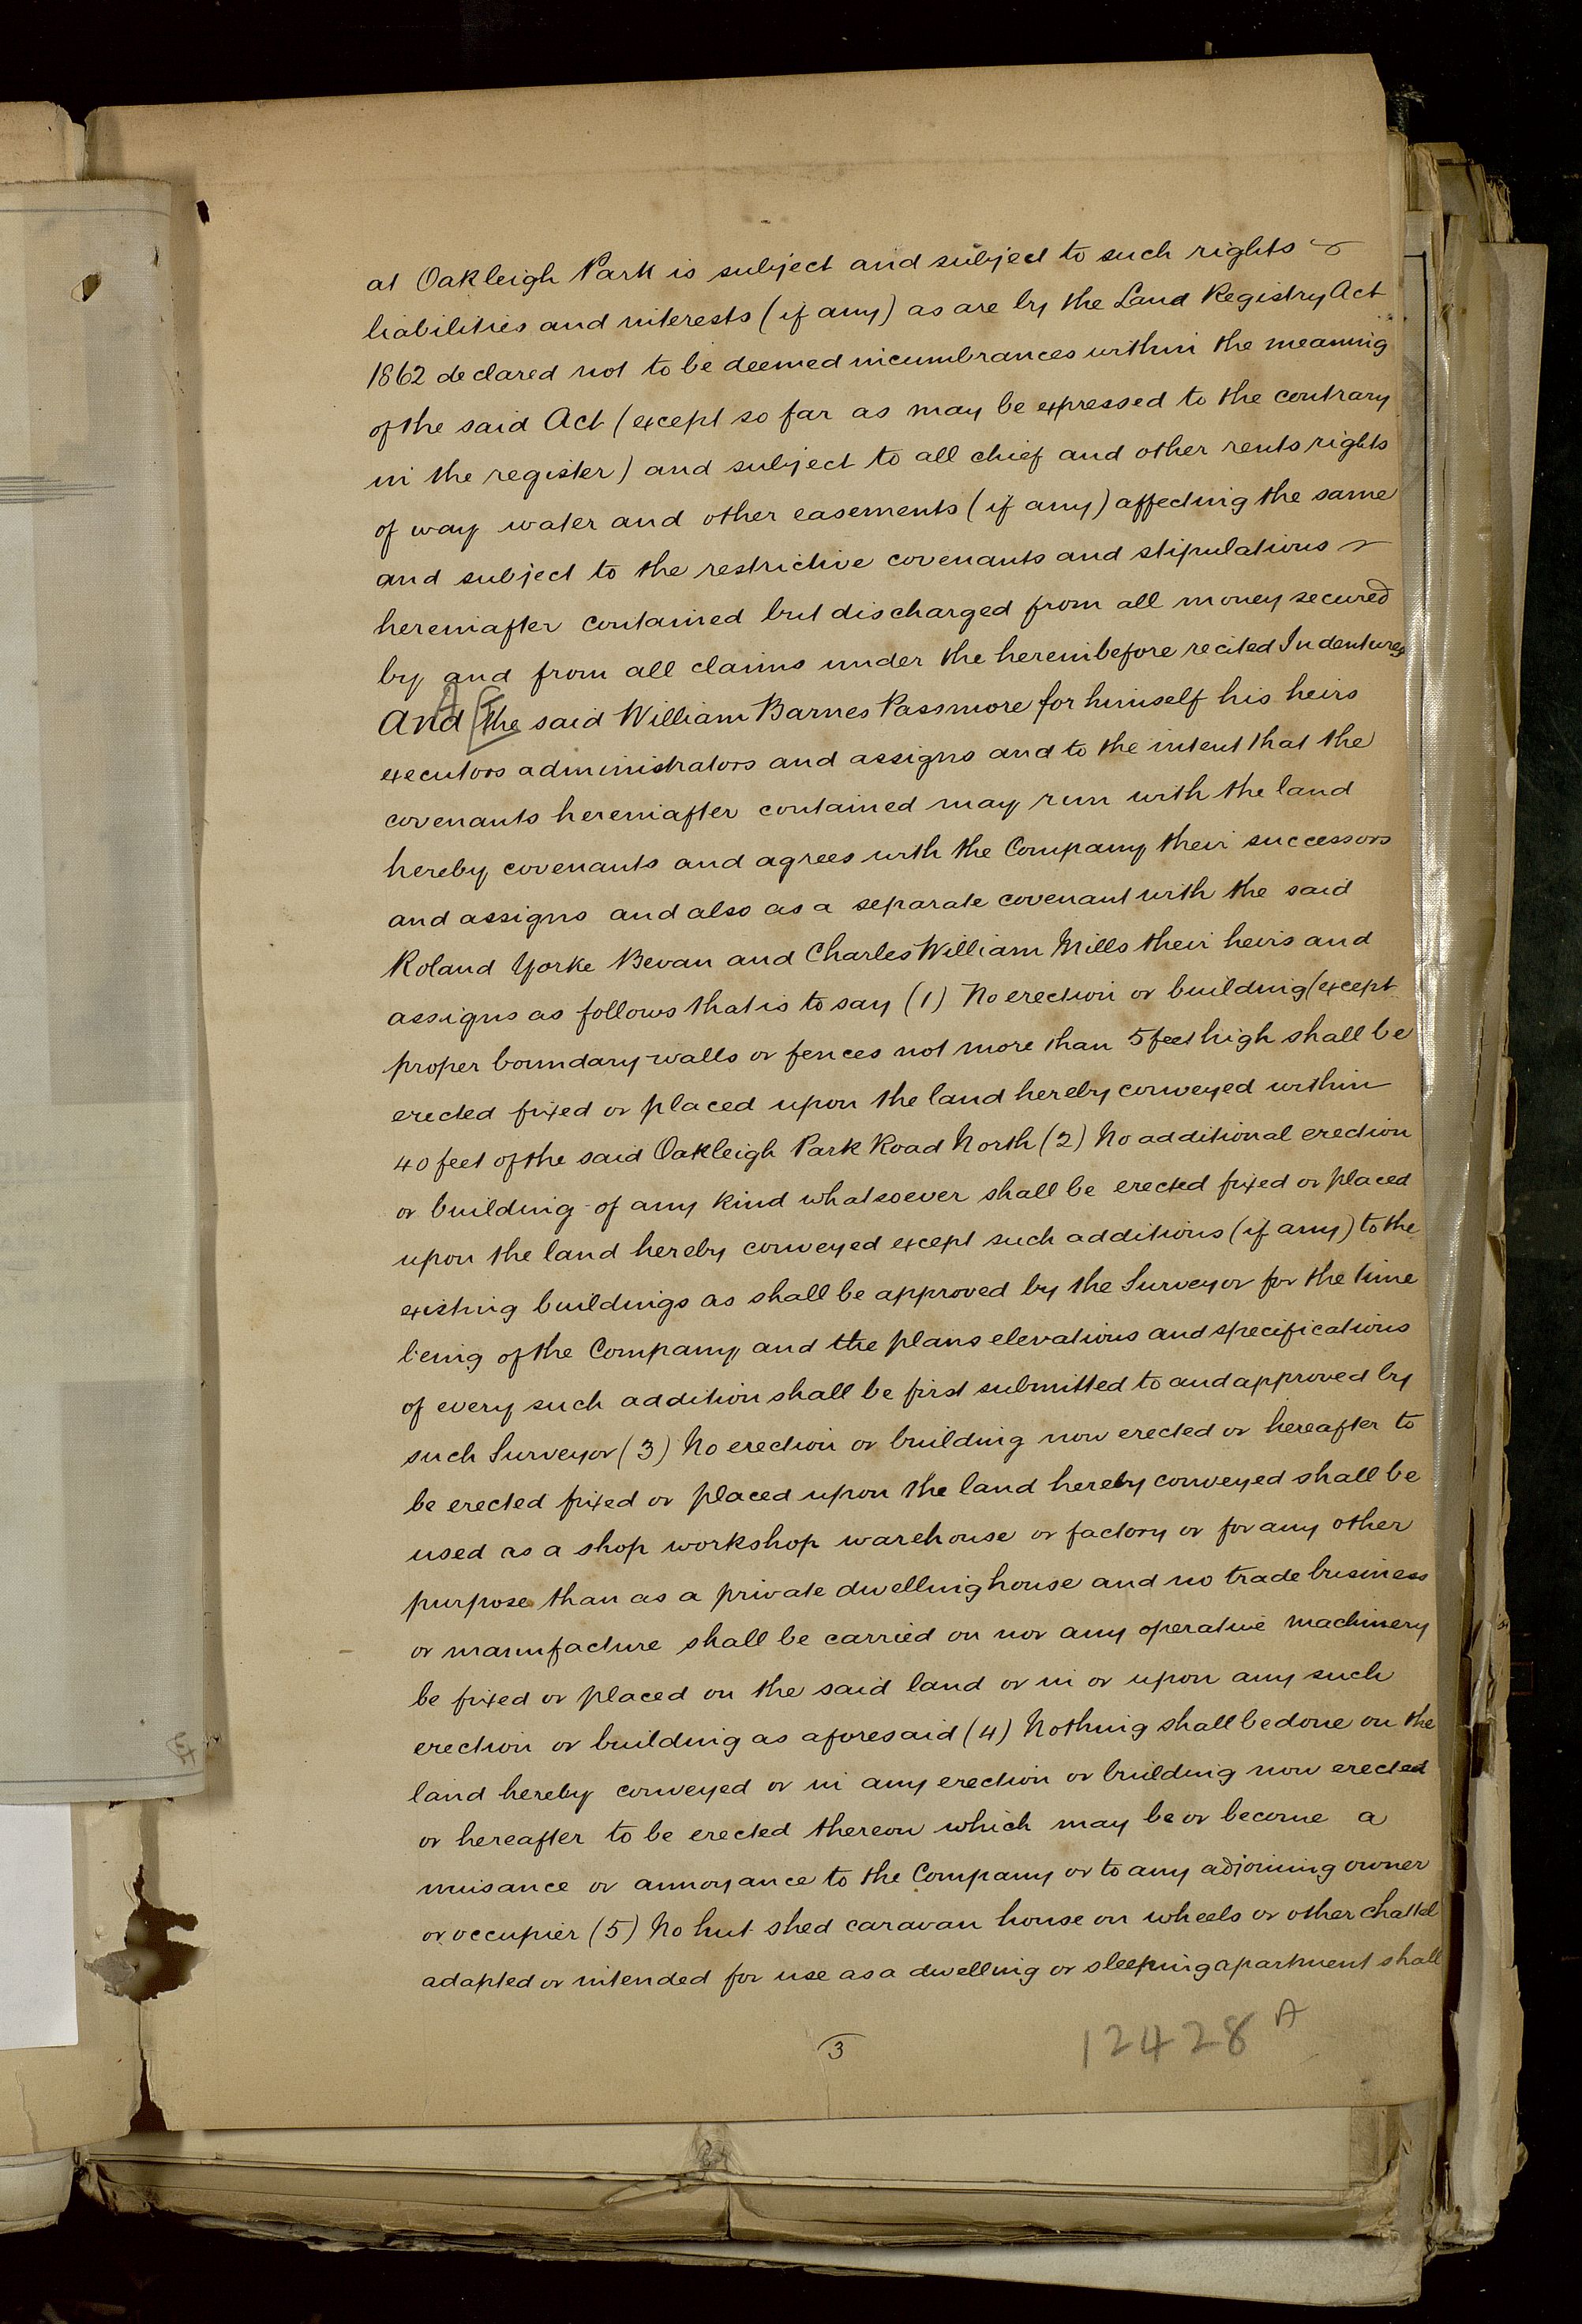 at Oakleigh Park is subject and subject to such rights
liabilities and interests (if any) as are by the Land Registry Act
1862 declared not to be deemed incumbrances within the meaning
of the said Act (except so far as may be expressed to the contrary
in the register) and subject to all chief and other rents rights
of way water and other easements (if any) affecting the same
and subject to the restrictive covenants and stipulations
hereinafter contained but discharged from all money secured
by and from all claims under the hereinbefore recited Indentures
And the said William Barnes Passmore for himself his heirs
executors administrators and assigns and to the intent that the
covenants hereinafter contained may run with the land
hereby covenants and agrees with the Company their successors
and assigns and also as a separate covenant with the said
Roland Yorke Bevan and Charles William Mills their heirs and
assigns as follows that is to say (1) No erection or building (except
proper boundary walls or fences not more than 5 feet high shall be
erected fixed or placed upon the land hereby conveyed within
40 feet of the said Oakleigh Park Road North (2) No additional erection
or building of any kind whatsoever shall be erected fixed or placed
upon the land hereby conveyed except such additions (if any) to the
existing buildings as shall be approved by the Surveyor for the time
being of the Company and the plans elevations and specifications
of every such addition shall be first submitted to and approved by
such Surveyor (3) No erection or building now erected or hereafter to
be erected fixed or placed upon the land hereby conveyed shall be
used as a shop workshop warehouse or factory or for any other
purpose than as a private dwellinghouse and no trade business
or manufacture shall be carried on nor any operative machinery
be fixed or placed on the said land or in or upon any such
erection or building as aforesaid (4) Nothing shall be done on the
land hereby conveyed or in any erection or building now erected
or hereafter to be erected thereon which may be or become a
nuisance or annoyance to the Company or to any adjoining owner
or occupier (5) No hut shed caravan house on wheels or other chattel
adapted or intended for use as a dwelling or sleeping apartment shall
3
12428 A